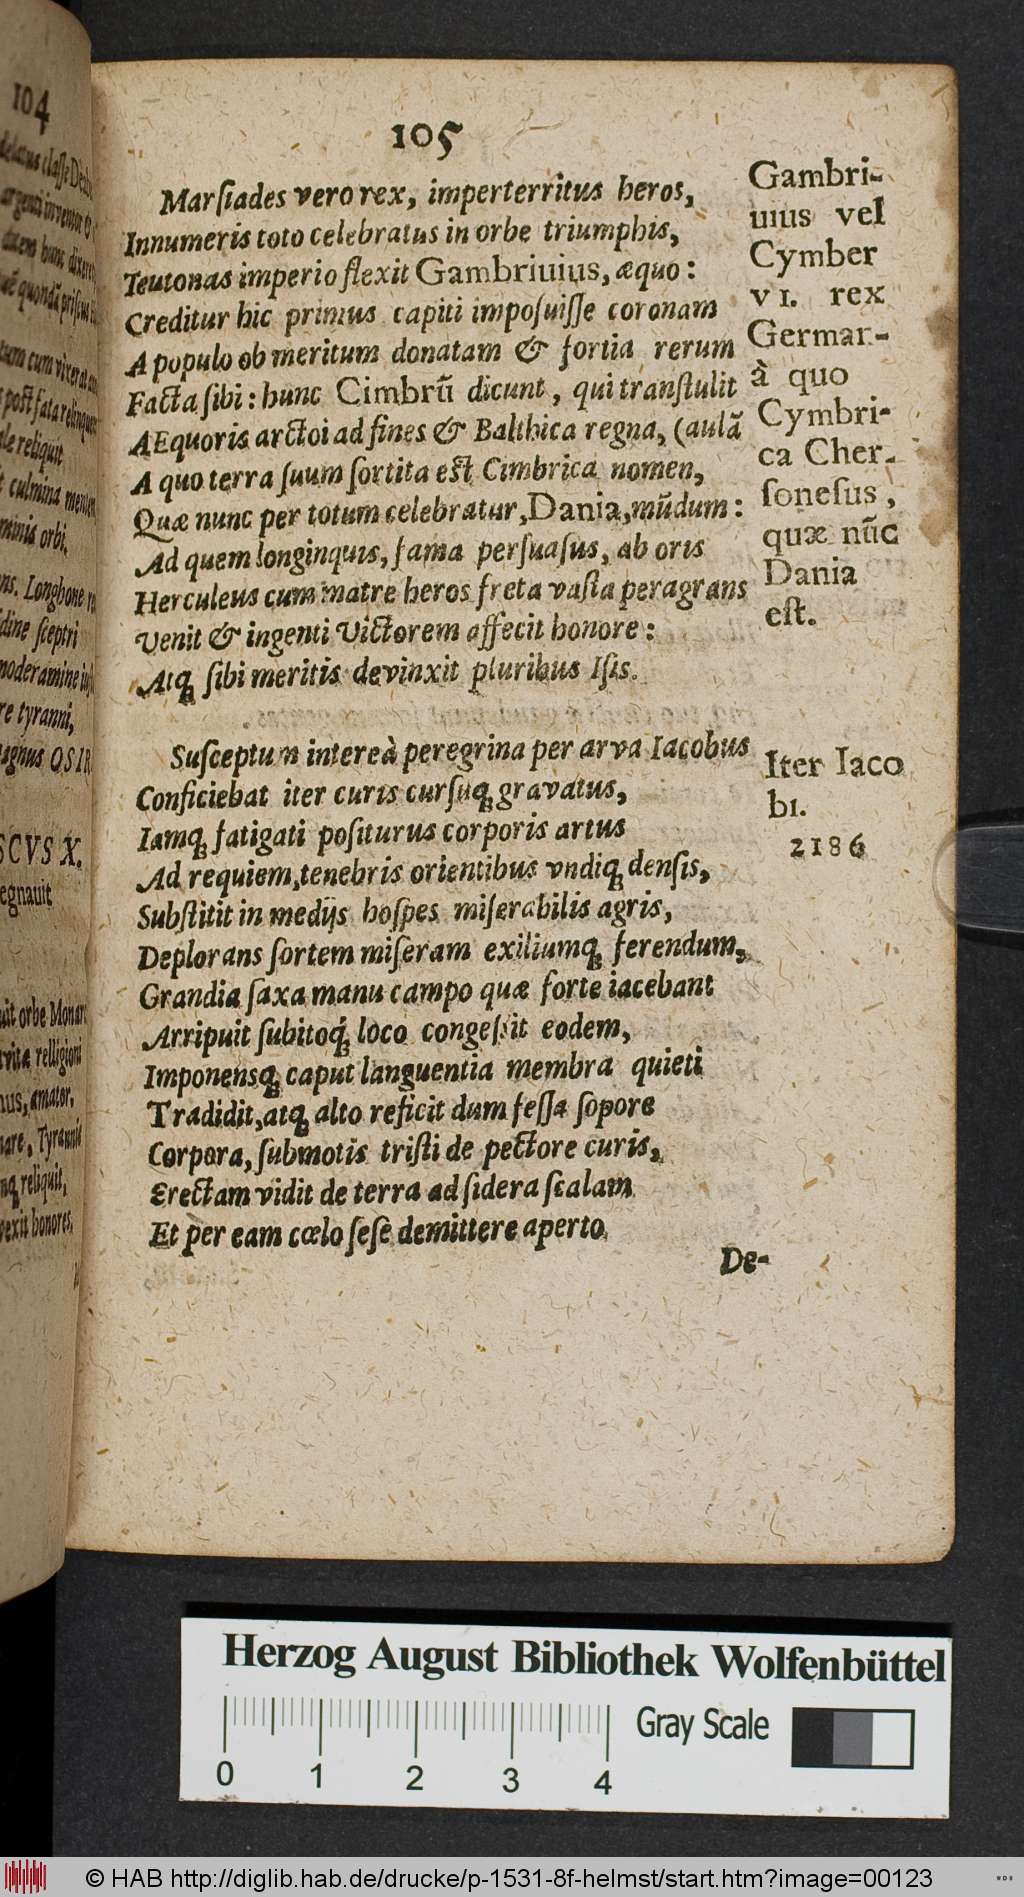 104
105
Marſiades vero rex, imperterritus heros,
Innumeris toto celebratus in orbe triumphis,
Teutonas imperio flexit Gambriuius, æquo:
Creditur hic primus capiti impoſuiſſe coronam
A populo ob meritum donatam & fortia rerum
Facta ſibi: hunc Cimbrũ dicunt, qui tranſtulit
AEquoris arctoi ad fines & Balthica regna, (aulã
A quo terra ſuum ſortita eſt Cimbrica nomen,
Quæ nunc per totum celebratur, Dania, mũdum:
Ad quem longinquis, fama perſuaſus, ab oris
Herculeus cum matre heros freta vaſta peragrans
Venit & ingenti Victorem affecit honore:
Atq; ſibi meritis devinxit pluribus Iſis.
Gambri-
uius vel
Cymber
VI. rex
German-
à quo
Cymbri-
ca Cher-
ſoneſus,
quæ nũc
Dania
eſt.
Suſceptum intereà peregrina per arva Iacobus
Conficiebat iter curis curſuq; gravatus,
Iamq; fatigati poſiturus corporis artus
Ad requiem, tenebris orientibus vndiq; denſis,
Subſtitit in medijs hoſpes miſerabilis agris,
Deplorans ſortem miſeram exiliumq; ferendum,
Grandia ſaxa manu campo quæ forte iacebant
Arripuit ſubitoq́; loco congeſſit eodem,
Imponensq; caput languentia membra quieti
Tradidit, atq; alto reficit dum feſſa ſopore
Corpora, ſubmotis triſti de pectore curis,
Erectam vidit de terra ad ſidera ſcalam
Et per eam cœlo ſeſe demittere aperto
Iter Iaco
bi.
2186
De-
Herzog August Bibliothek Wolfenbüttel
0 1 2 3 4
Gray Scale
© HAB http://diglib.hab.de/drucke/p-1531-8f-helmst/start.htm?image=00123